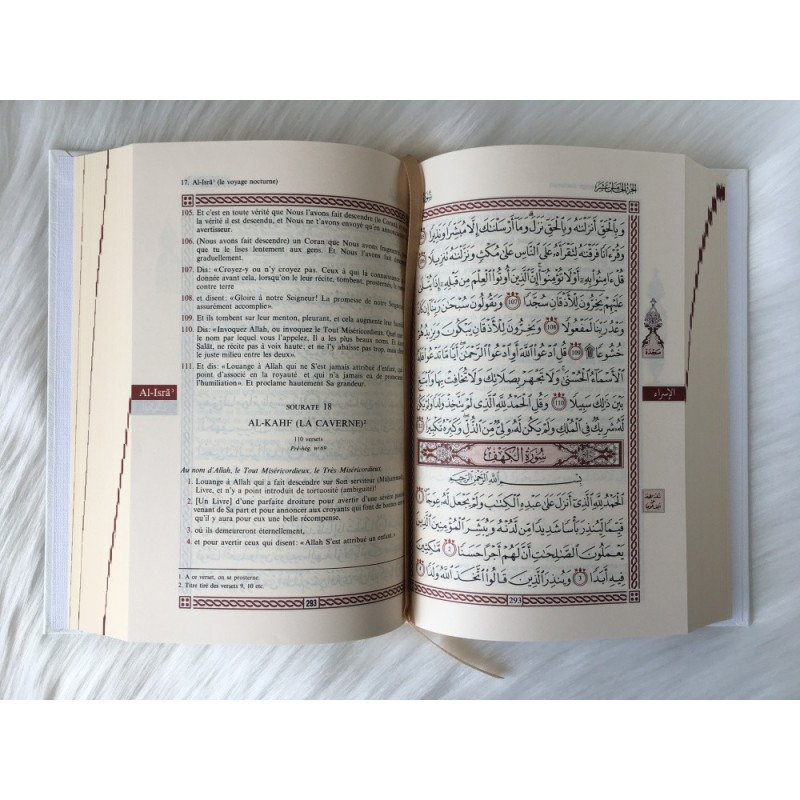 17. Al-Isrâ' (le voyage nocturne)
105. Et c'est en toute vérité que Nous l'avons fait descendre (le Coran
la vérité il est descendu, et Nous ne t'avons envoyé qu'en
avertisseur.
106. (Nous avons fait descendre) un Coran que Nous avons fragmen
que tu le lises lentement aux gens. Et Nous l'avons fait
graduellement.
107. Dis: «Croyez-y ou n'y croyez pas. Ceux à qui la connaissance
donnée avant cela, lorsqu'on le leur récite, tombent, prosternés,
contre terre
108. et disent: «Gloire à notre Seigneur! La promesse de notre Seigneur
assurément accomplie».
109. Et ils tombent sur leur menton, pleurant, et cela augmente leur
110. Dis: «Invoquez Allah, ou invoquez le Tout Miséricordieux. Quel
le nom par lequel vous l'appelez, Il a les plus beaux noms. Et dans
Salât, ne récite pas à voix haute; et ne l'y abaisse pas trop, mais
le juste milieu entre les deux».
111. Et dis: «Louange à Allah qui ne S'est jamais attribué d'enfant,
point d'associé en la royauté et qui n'a jamais eu de
l'humiliation». Et proclame hautement Sa grandeur.
Al-Isrâ'
SOURATE 18
AL-KAHF (LA CAVERNE)²
110 versets
Pré-hég. n° 69
Au nom d'Allah, le Tout Miséricordieux, le Très Miséricordieux.
1. Louange à Allah qui a fait descendre sur Son serviteur (Muhammad
Livre, et n'y a point introduit de tortuosité (ambiguïté)!
2. [Un Livre] d'une parfaite droiture pour avertir d'une sévère
venant de Sa part et pour annoncer aux croyants qui font de bonnes
qu'il y aura pour eux une belle récompense.
3. où ils demeureront éternellement,
4. et pour avertir ceux qui disent: «Allah S'est attribué un enfant.»
1. A ce verset, on se prosterne.
2. Titre tiré des versets 9, 10 etc.
293
الجزء الخامس عشر
وَبِالْحَقِّ أَنزَلْنَاهُ وَبِالْحَقِّ نَزَلَ وَمَا أَرْسَلْنَاكَ إِلَّا مُبَشِّرًا وَنَذِيرًا
وَقُرْءَانًا فَرَقْنَاهُ لِتَقْرَأَهُ عَلَى النَّاسِ عَلَى مُكْثٍ وَنَزَّلْنَاهُ تَنزِيلًا
قُلْ ءَامِنُوا بِهِ أَوْ لَا تُؤْمِنُوا إِنَّ الَّذِينَ أُوتُوا الْعِلْمَ مِن قَبْلِهِ إِذَا يُتْلَى
عَلَيْهِمْ يَخِرُّونَ لِلْأَذْقَانِ سُجَّدًا ١٠٧ وَيَقُولُونَ سُبْحَانَ رَبِّنَا إِن كَانَ
وَعْدُ رَبِّنَا لَمَفْعُولًا ١٠٨ وَيَخِرُّونَ لِلْأَذْقَانِ يَبْكُونَ وَيَزِيدُهُمْ
خُشُوعًا ۩ ١٠٩ قُلِ ادْعُوا اللَّهَ أَوِ ادْعُوا الرَّحْمَنَ أَيًّا مَّا تَدْعُوا فَلَهُ
الْأَسْمَاءُ الْحُسْنَى وَلَا تَجْهَرْ بِصَلَاتِكَ وَلَا تُخَافِتْ بِهَا وَابْتَغِ
بَيْنَ ذَلِكَ سَبِيلًا ١١٠ وَقُلِ الْحَمْدُ لِلَّهِ الَّذِي لَمْ يَتَّخِذْ وَلَدًا وَلَمْ يَكُن
لَّهُ شَرِيكٌ فِي الْمُلْكِ وَلَمْ يَكُن لَّهُ وَلِيٌّ مِّنَ الذُّلِّ وَكَبِّرْهُ تَكْبِيرًا
سُورَةُ الْكَهْفِ
بِسْمِ اللَّهِ الرَّحْمَنِ الرَّحِيمِ
الْحَمْدُ لِلَّهِ الَّذِي أَنزَلَ عَلَى عَبْدِهِ الْكِتَابَ وَلَمْ يَجْعَل لَّهُ عِوَجًا
قَيِّمًا لِّيُنذِرَ بَأْسًا شَدِيدًا مِّن لَّدُنْهُ وَيُبَشِّرَ الْمُؤْمِنِينَ الَّذِينَ
يَعْمَلُونَ الصَّالِحَاتِ أَنَّ لَهُمْ أَجْرًا حَسَنًا ٢ مَّاكِثِينَ
فِيهِ أَبَدًا ٣ وَيُنذِرَ الَّذِينَ قَالُوا اتَّخَذَ اللَّهُ وَلَدًا
سجدة
الإسراء
293